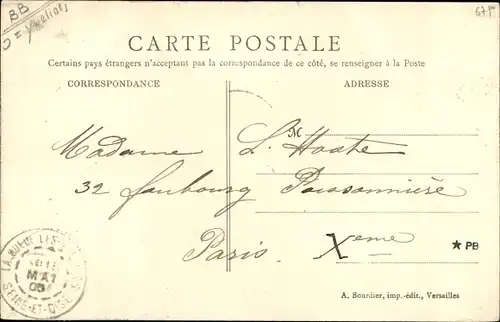 BB
67/*
CARTE POSTALE
Certains pays étrangers n'acceptant pas la correspondance de ce côté, se renseigner à la Poste
CORRESPONDANCE
ADRESSE
M
Madame L. Hoste
32 faubourg Poissonnière
Paris. Xeme
★ PB
LA QUEUE LES
MAI
SEINE-ET-OISE
A. Bourdier, imp.-édit., Versailles